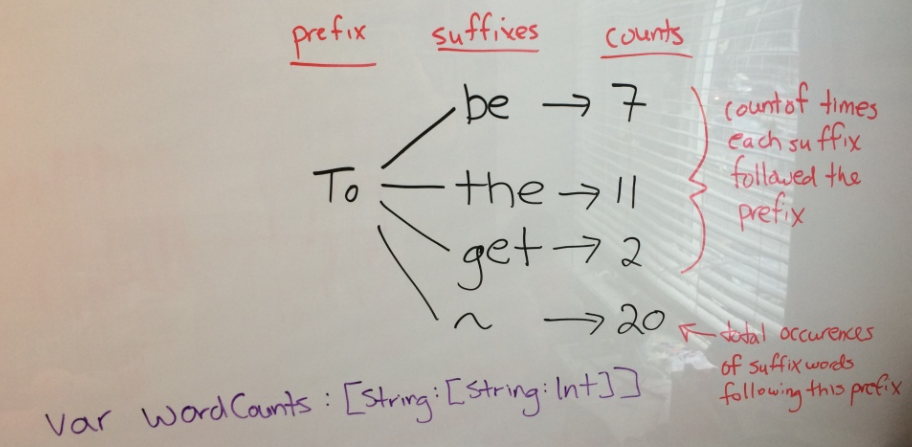 prefix suffixes counts
be → 7
To the → 11
get → 2
~ → 20
count of times
each suffix
followed the
prefix
total occurences
of suffix words
following this prefix
var wordCounts : [String:[String:Int]]